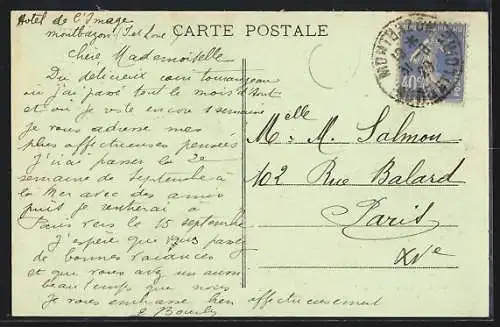 Hôtel de l'Image
Montbazon Ind Loire
CARTE POSTALE
Chère Mademoiselle
Du délicieux coin tourangeau
où j'ai passé tout le mois d'Août
et où je reste encore 1 semaine
je vous adresse mes
plus affectueuses pensées
J'irai passer la 2e
semaine de septembre à
la Mer avec des amis
puis je rentrerai à
Paris vers le 15 septembre
J'espère que vous passez
de bonnes vacances
et que vous avez un aussi
beau temps que nous
Je vous embrasse bien affectueusement
Melle M. Salmon
102 Rue Balard
Paris
XVe
40c
MONTBAZON